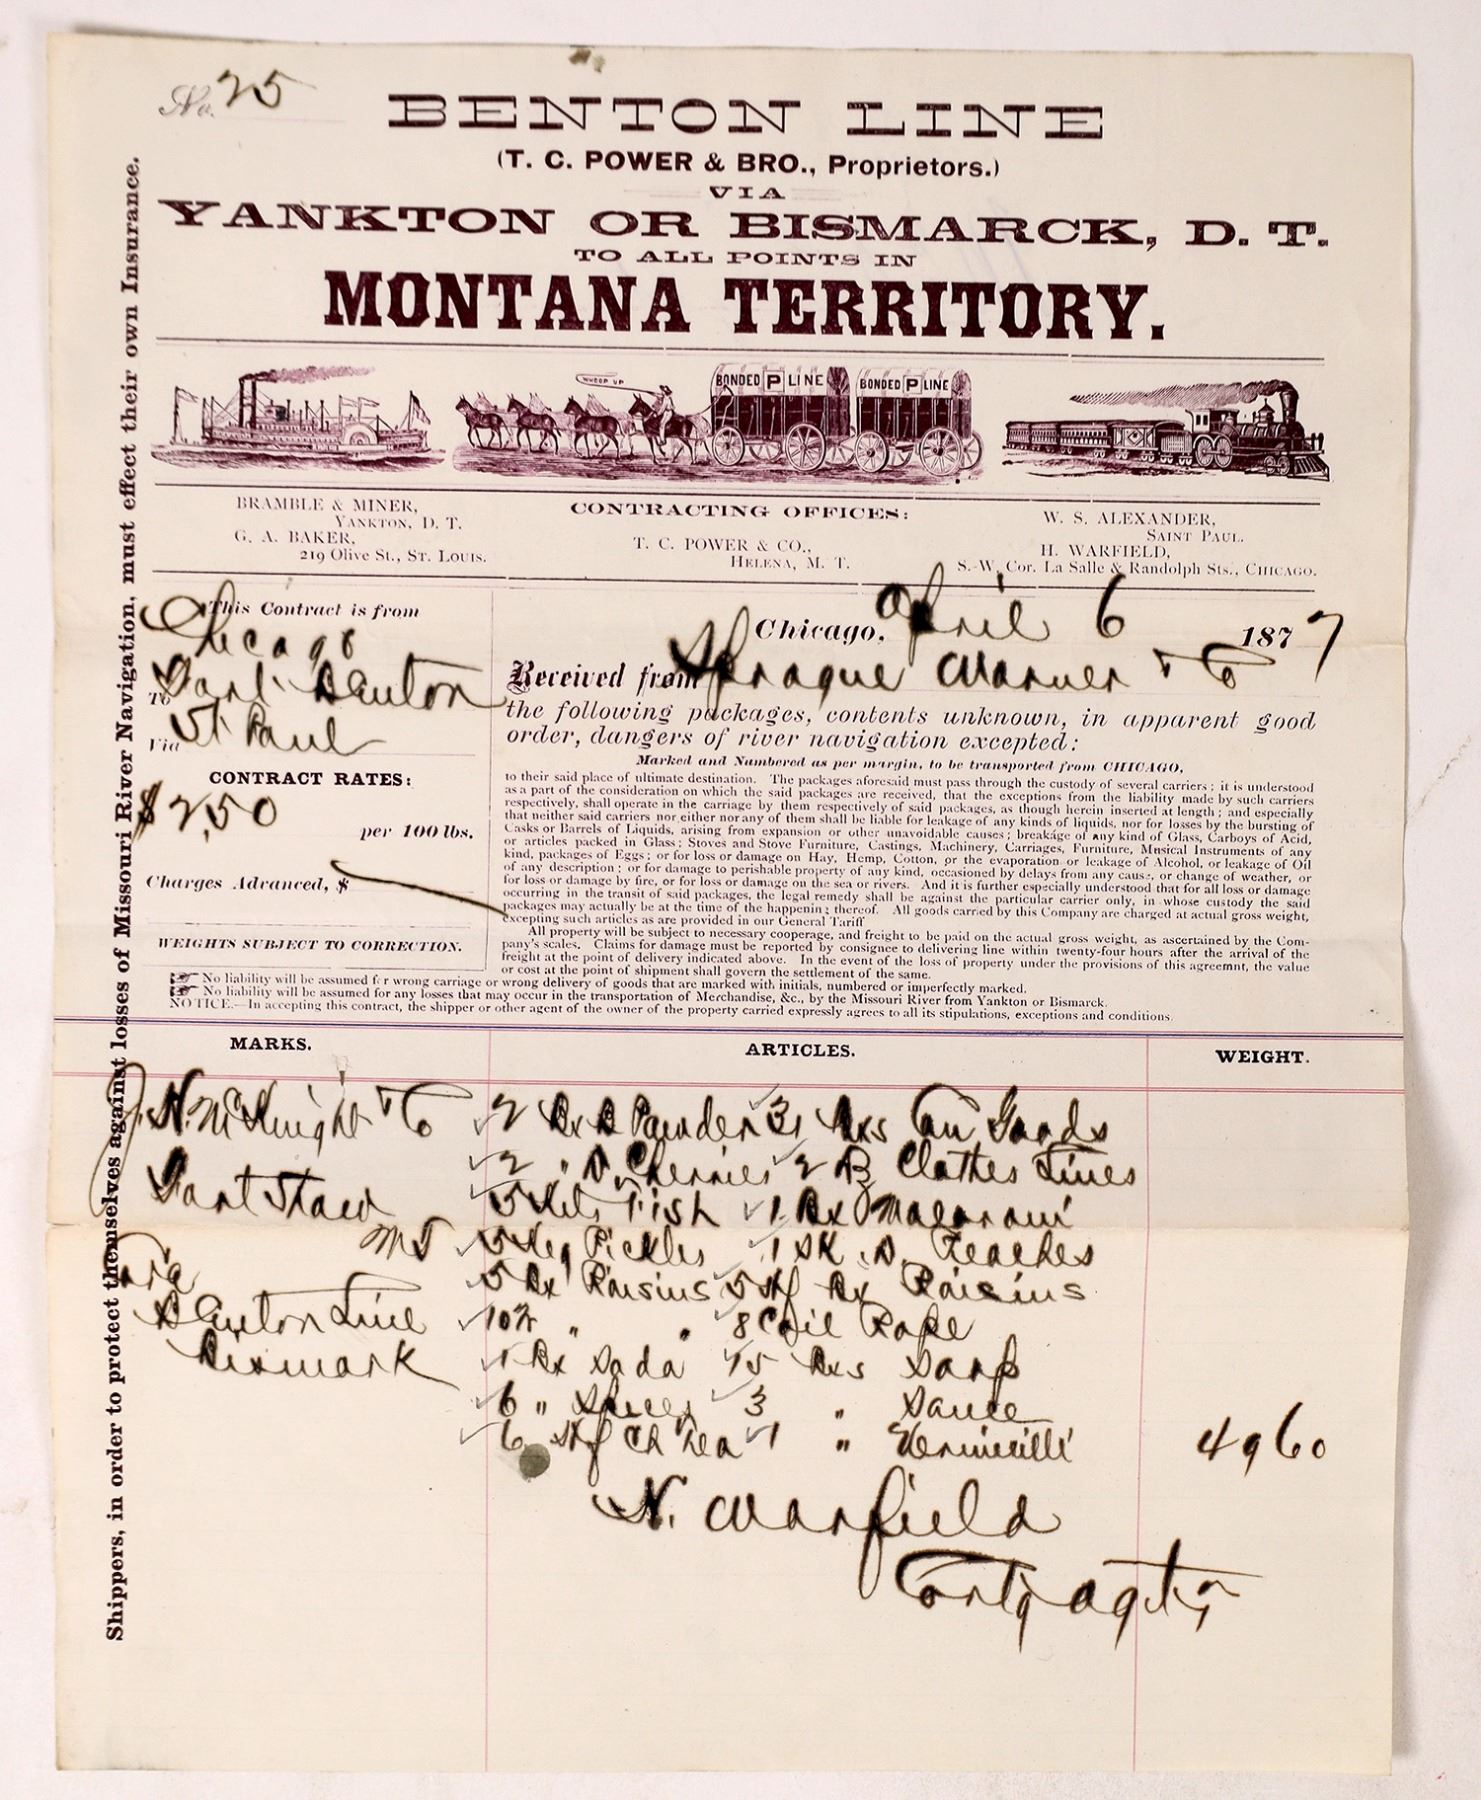 No. 25
BENTON LINE
(T. C. POWER & BRO., Proprietors.)
VIA
YANKTON OR BISMARCK, D. T.
TO ALL POINTS IN
MONTANA TERRITORY.
WHOOP UP
BONDED P LINE
BONDED P LINE
BRAMBLE & MINER,
YANKTON, D. T.
G. A. BAKER,
219 Olive St., ST. LOUIS.
CONTRACTING OFFICES:
T. C. POWER & CO.,
HELENA, M. T.
W. S. ALEXANDER,
SAINT PAUL.
H. WARFIELD,
S.-W. Cor. La Salle & Randolph Sts., CHICAGO.
This Contract is from
Chicago
To Fort Benton
Via St Paul
CONTRACT RATES:
$2,50
per 100 lbs.
Charges Advanced, $
WEIGHTS SUBJECT TO CORRECTION.
Chicago, April 6 1877
Received from Sprague Warner & Co
the following packages, contents unknown, in apparent good
order, dangers of river navigation excepted:
Marked and Numbered as per margin, to be transported from CHICAGO,
to their said place of ultimate destination. The packages aforesaid must pass through the custody of several carriers; it is understood
as a part of the consideration on which the said packages are received, that the exceptions from the liability made by such carriers
respectively, shall operate in the carriage by them respectively of said packages, as though herein inserted at length; and especially
that neither said carriers nor either nor any of them shall be liable for leakage of any kinds of liquids, nor for losses by the bursting of
Casks or Barrels of Liquids, arising from expansion or other unavoidable causes; breakage of any kind of Glass, Carboys of Acid,
or articles packed in Glass; Stoves and Stove Furniture, Castings, Machinery, Carriages, Furniture, Musical Instruments of any
kind, packages of Eggs; or for loss or damage on Hay, Hemp, Cotton, or the evaporation or leakage of Alcohol, or leakage of Oil
of any description; or for damage to perishable property of any kind, occasioned by delays from any cause, or change of weather, or
for loss or damage by fire, or for loss or damage on the sea or rivers. And it is further especially understood that for all loss or damage
occurring in the transit of said packages, the legal remedy shall be against the particular carrier only, in whose custody the said
packages may actually be at the time of the happening thereof. All goods carried by this Company are charged at actual gross weight,
excepting such articles as are provided in our General Tariff
All property will be subject to necessary cooperage, and freight to be paid on the actual gross weight, as ascertained by the Com-
pany's scales. Claims for damage must be reported by consignee to delivering line within twenty-four hours after the arrival of the
freight at the point of delivery indicated above. In the event of the loss of property under the provisions of this agreemnt, the value
or cost at the point of shipment shall govern the settlement of the same.
No liability will be assumed for wrong carriage or wrong delivery of goods that are marked with initials, numbered or imperfectly marked.
No liability will be assumed for any losses that may occur in the transportation of Merchandise, &c., by the Missouri River from Yankton or Bismarck.
NOTICE.—In accepting this contract, the shipper or other agent of the owner of the property carried expressly agrees to all its stipulations, exceptions and conditions.
MARKS. ARTICLES. WEIGHT.
J. H. McKnight & Co
Fort Shaw
MT
Via
Benton Line
Bismark
2 Bx B Powder 31 Bxs Can Goods
2 " D Cherries 2 B Clothes Lines
5 Kits Fish 1 Bx Macaroni
5 Keg Pickles 1 SK D. Peaches
5 Bx Raisins 5 Hf Bx Raisins
10 " " 8 Coil Rope
1 Bx Soda 15 Bxs Soap
6 " Spices 3 " Sauce
6 Hf Ch Tea 1 " Vermicilli 4960
H. Warfield
Shippers, in order to protect themselves against losses of Missouri River Navigation, must effect their own Insurance.